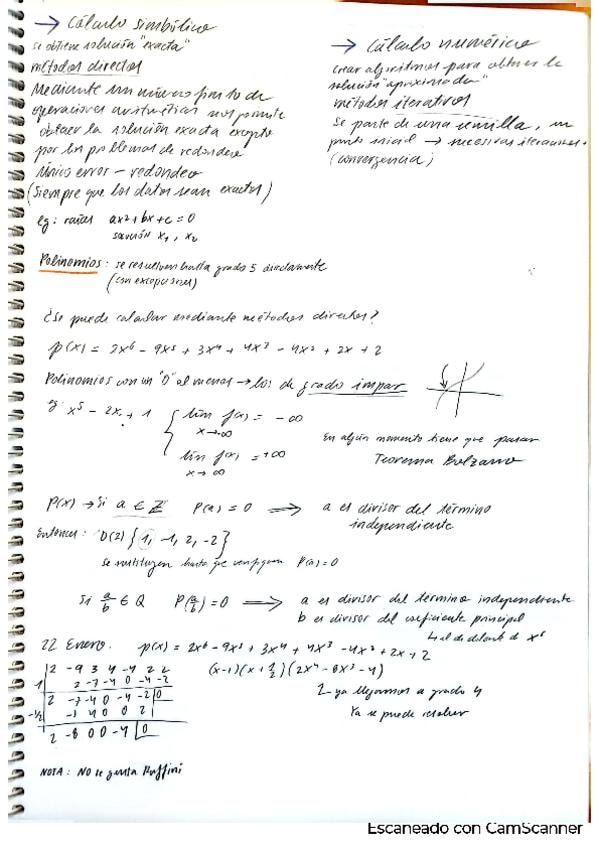 → Cálculo simbólico
se obtiene solución "exacta"
métodos directos
Mediante un número finito de
operaciones aritméticas nos permite
obtener la solución exacta excepto
por los problemas de redondeo
Único error – redondeo
(Siempre que los datos sean exactos)
eg: raíces ax²+bx+c=0
solución x₁, x₂
→ Cálculo numérico
crear algoritmos para obtener la
solución "aproximada"
métodos iterativos
Se parte de una semilla, un
punto inicial → necesitas iteraciones
(convergencia)
Polinomios: se resuelven hasta grado 5 directamente
(con excepciones)
¿Se puede calcular mediante métodos directos?
p(x) = 2x⁶ - 9x⁵ + 3x⁴ + 4x³ - 4x² + 2x + 2
Polinomios con un "0" al menos → los de grado impar
eg: x⁵ - 2x + 1 { lim f(x) = -∞
x→-∞
lim f(x) = +∞
x→∞
En algún momento tiene que pasar
Teorema Bolzano
P(x) → Si a ∈ Z P(a) = 0 ⟹ a es divisor del término
independiente
Entonces: D(2) {1, -1, 2, -2}
Se sustituyen hasta que verifiquen P(a)=0
Si a/b ∈ Q P(a/b) = 0 ⟹ a es divisor del término independiente
b es divisor del coeficiente principal
↳ el de delante de x⁶
22 Enero. p(x) = 2x⁶ - 9x⁵ + 3x⁴ + 4x³ - 4x² + 2x + 2
2 -9 3 4 -4 2 2
1 2 -7 -4 0 -4 -2
2 -7 -4 0 -4 -2 0
-1/2 -1 4 0 0 2
2 -8 0 0 -4 0
(x-1)(x+1/2)(2x⁴-8x³-4)
ya llegamos a grado 4
Ya se puede resolver
NOTA: NO le gusta Ruffini
Escaneado con CamScanner